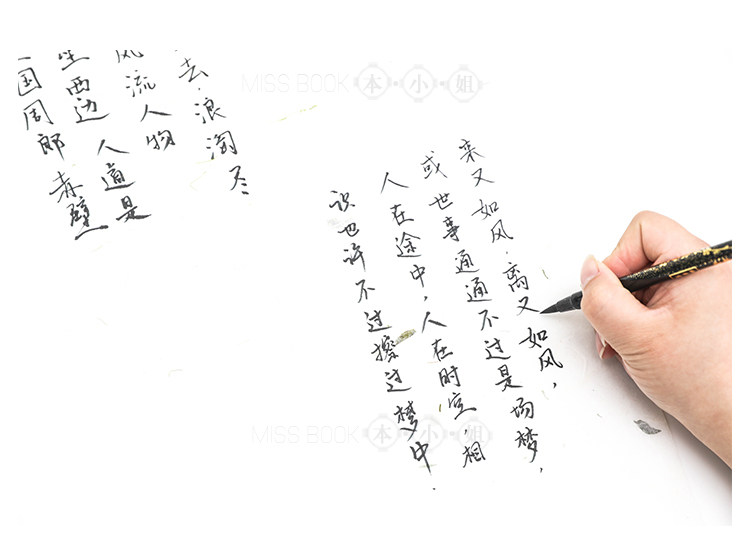 去，浪淘尽
风流人物
垒西边 人道是
国周郎赤壁
来又如风，离又如风，
或世事通通不过是场梦，
人在途中，人在时空，相
识也许不过擦过梦中.
MISS BOOK 本·小·姐
MISS BOOK 本·小·姐